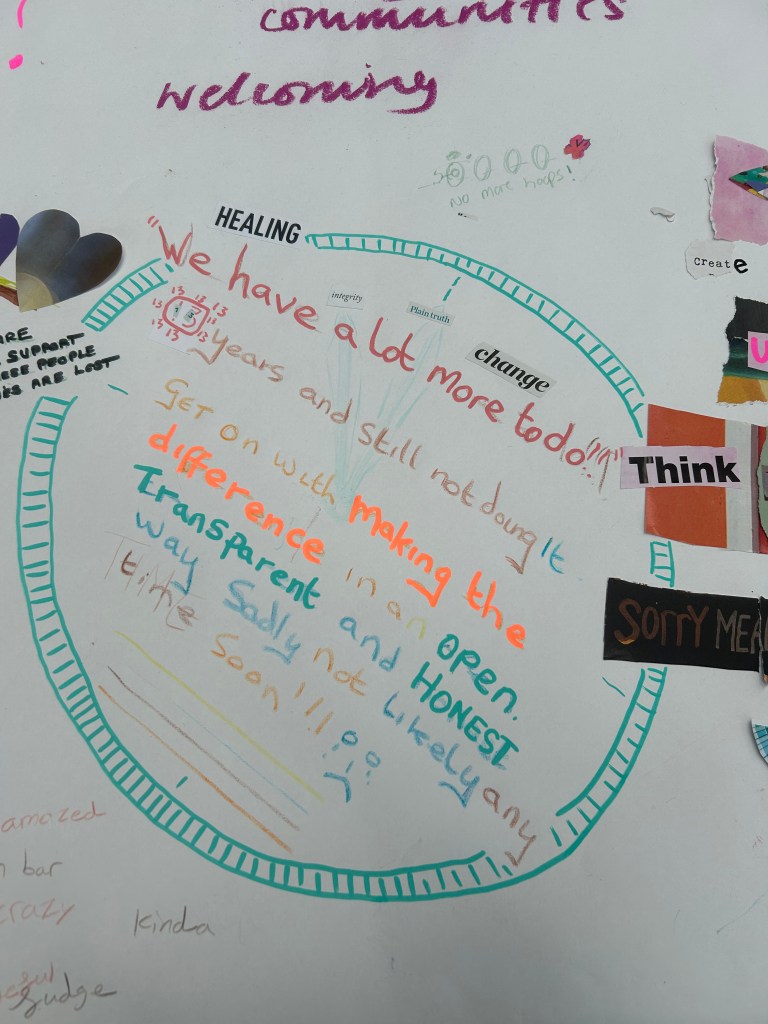 communities
welcoming
No more hoops!
HEALING
create
"We have a lot more to do!"
integrity
Plain truth
change
13 13 13 13 13 13 13 13
years and still not doing It
Think
ARE
SUPPORT
PEOPLE
ARE LOST
Get on with making the
difference in an open.
Transparent and HONEST
way Sadly not Likely any
time
Soon!!!
SORRY MEA
amazed
bar
crazy
kinda
Judge